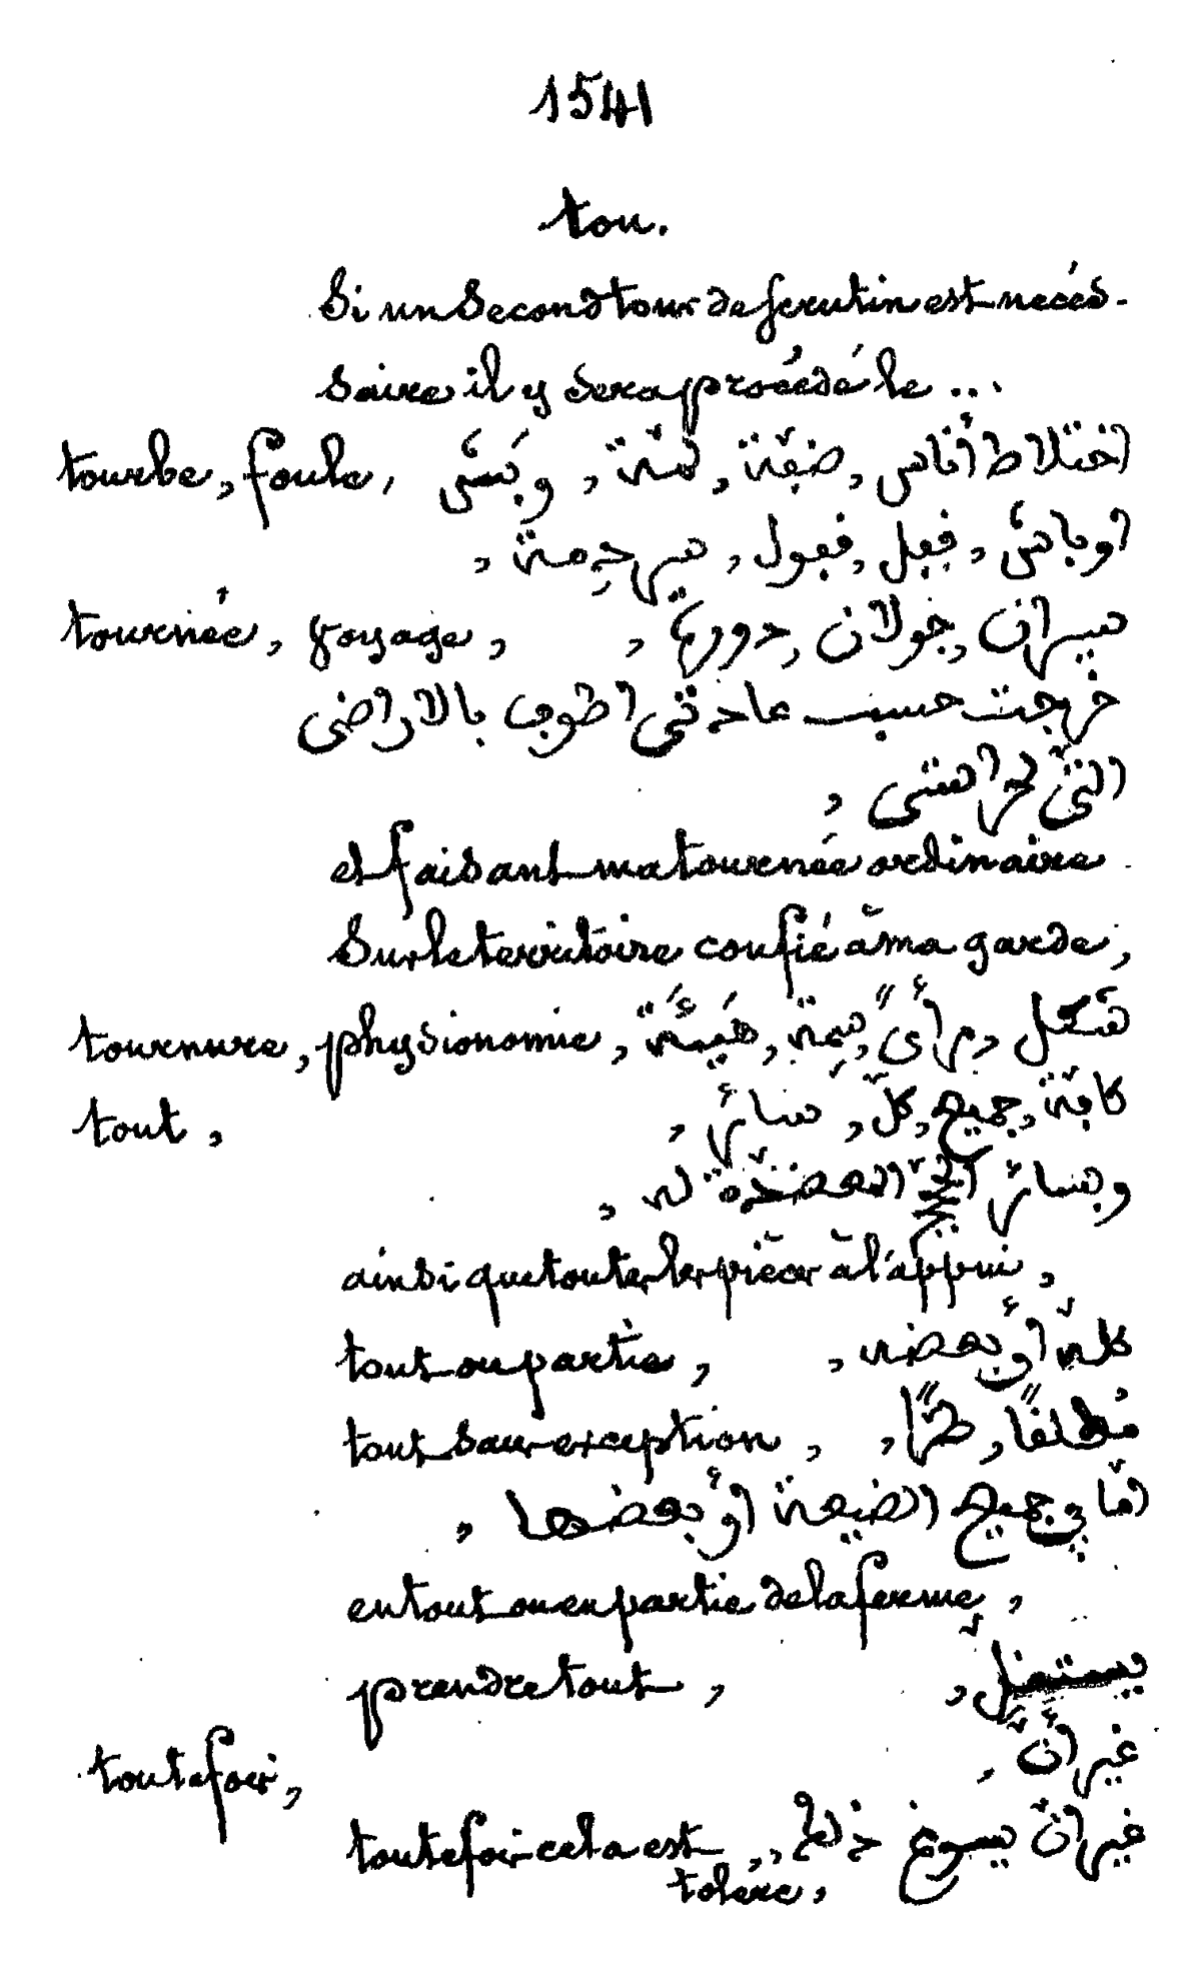 1541
tou.
Si un second tour de scrutin est néces-
saire il y sera procédé le ...
tourbe, foule, اختلاط أناس, ضفّة, لمّة, وَبَش
اوباش,
tournée, voyage, سيران, جولان, دورية,
خرجت حسب عادتي اطوف بالاراضي
التي لحراستي,
et faisant ma tournée ordinaire
sur le territoire confié à ma garde,
tournure, physionomie, شكل, مرأًى, سِمة, هَيْئَة,
tout, كافّة, جميع, كلّ, سائر,
وبسائر الحجج المعضّدة له,
ainsi que toutes les pièces à l'appui,
tout ou partie, كلّه أو بعضه,
tout sans exception, مُطلقًا, طرًّا,
امّا في جميع الضيعة أو بعضها,
en tout ou en partie de la ferme,
prendre tout, يستغلّ,
toutefois, غير أنّ,
toutefois cela est غير انّ يسوغ ذلك,
toléré,